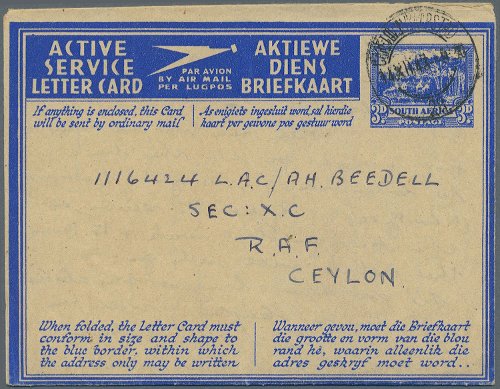 ACTIVE
SERVICE
LETTER CARD
PAR AVION
BY AIR MAIL
PER LUGPOS
AKTIEWE
DIENS
BRIEFKAART
If anything is enclosed, this Card
will be sent by ordinary mail
As enigiets ingesluit word, sal hierdie
kaart per gewone pos gestuur word
3D SOUTH AFRICA 3D
POSTAGE
1116424 L.A.C/A.H. BEEDELL
SEC: X.C
R.A.F.
CEYLON.
When folded, the Letter Card must
conform in size and shape to
the blue border, within which
the address only may be written
Wanneer gevou, moet die Briefkaart
die grootte en vorm van die blou
rand hê, waarin alleenlik die
adres geskryf moet word..